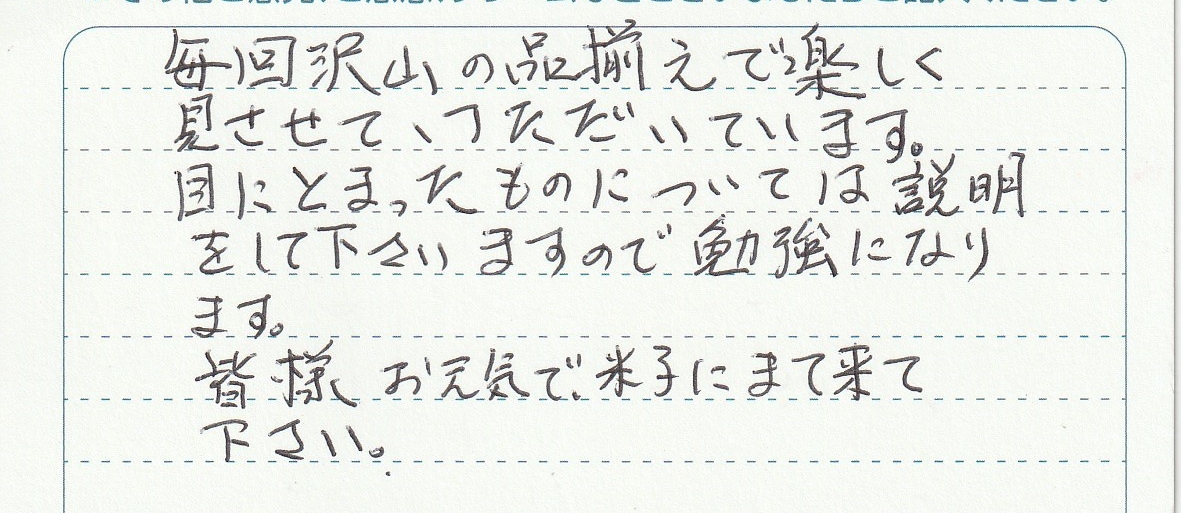 毎回沢山の品揃えで楽しく
見させていつただいています。
目にとまったものについては説明
をして下さいますので勉強になり
ます。
皆様お元気で、米子にまて来て
下さい。